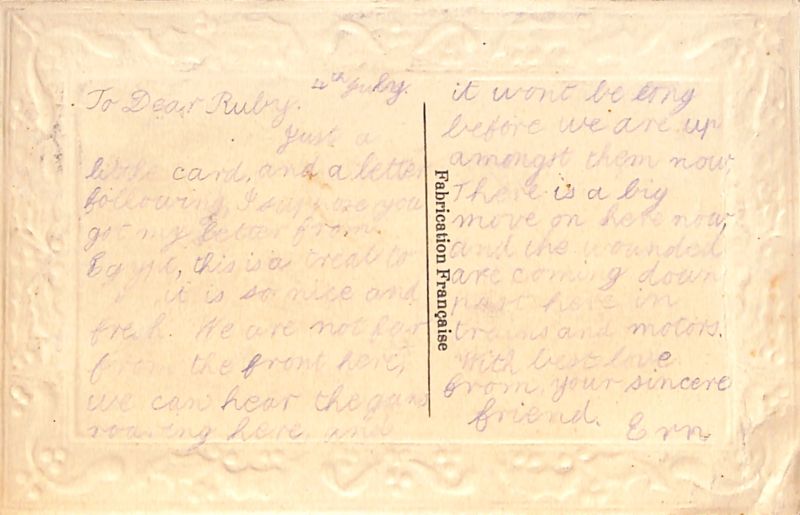 4th July.
To Dear Ruby.
Just a
little card, and a letter
following, I suppose you
got my letter from
Egypt, this is a treat to
it is so nice and
fresh. We are not far
from the front here,
we can hear the guns
roaring here, and
Fabrication Française
it wont be long
before we are up
amongst them now,
There is a big
move on here now,
and the wounded
are coming down
past here in
trains and motors.
With best love
from, your sincere
friend.
Ern